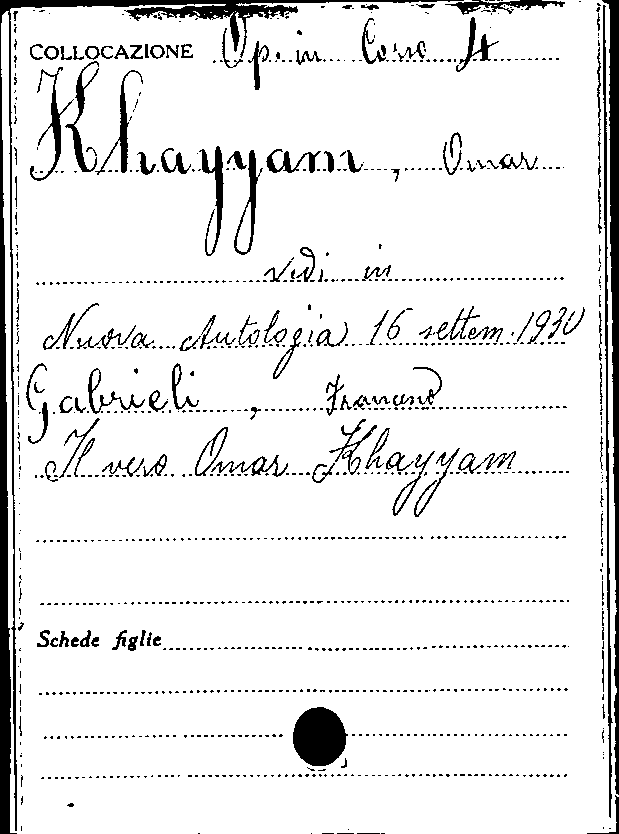 COLLOCAZIONE Op. in Corso 4
Khayyam, Omar
vedi in
Nuova Antologia 16 settem. 1930
Gabrieli, Francesco
Il vero Omar Khayyam
Schede figlie